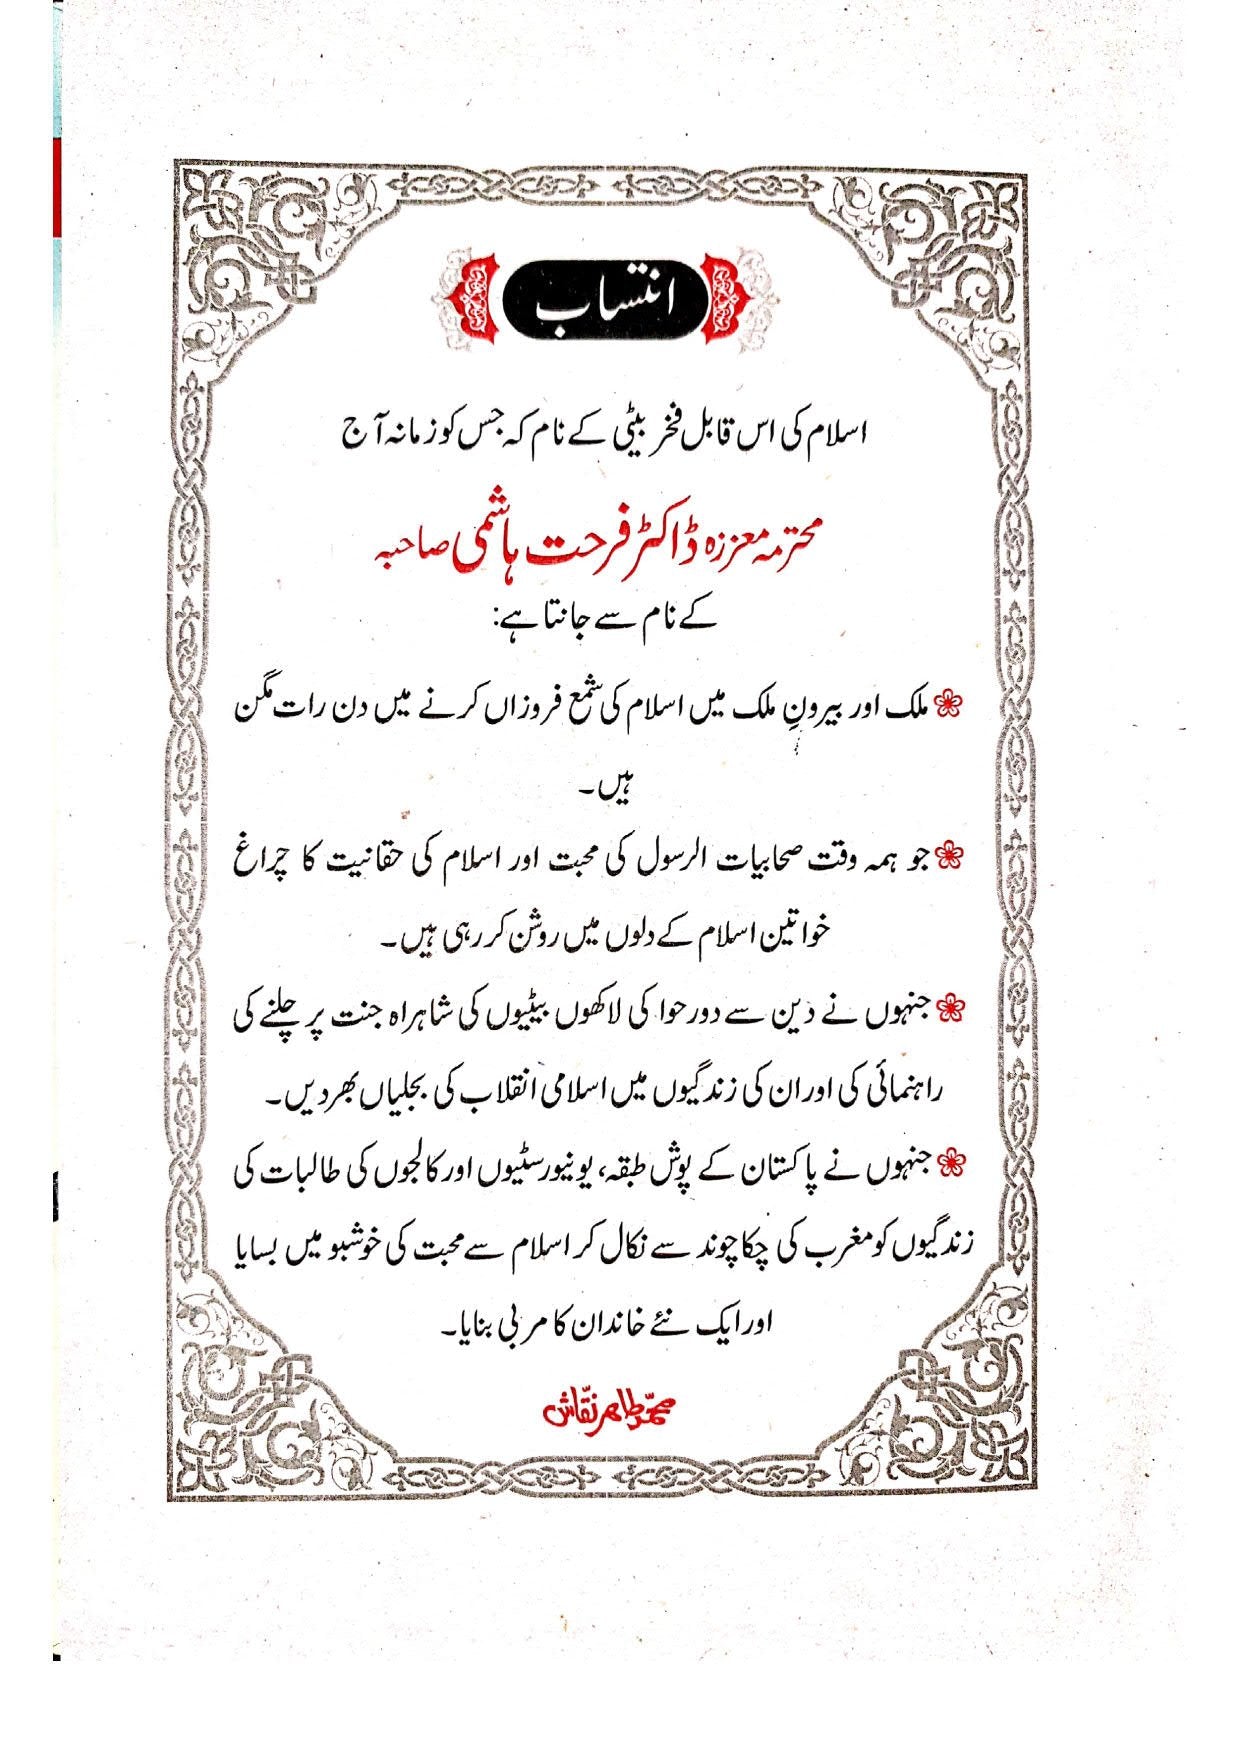 انتساب
اسلام کی اس قابل فخر بیٹی کے نام کہ جس کو زمانہ آج
محترمہ معززہ ڈاکٹر فرحت ہاشمی صاحبہ
کے نام سے جانتا ہے:
ملک اور بیرونِ ملک میں اسلام کی شمع فروزاں کرنے میں دن رات مگن
ہیں۔
جو ہمہ وقت صحابیات الرسول کی محبت اور اسلام کی حقانیت کا چراغ
خواتین اسلام کے دلوں میں روشن کر رہی ہیں۔
جنہوں نے دین سے دور حوا کی لاکھوں بیٹیوں کی شاہراہ جنت پر چلنے کی
راہنمائی کی اور ان کی زندگیوں میں اسلامی انقلاب کی بجلیاں بھر دیں۔
جنہوں نے پاکستان کے پوش طبقہ، یونیورسٹیوں اور کالجوں کی طالبات کی
زندگیوں کو مغرب کی چکا چوند سے نکال کر اسلام سے محبت کی خوشبو میں بسایا
اور ایک نئے خاندان کا مربی بنایا۔
محمد طاہر نقّاش